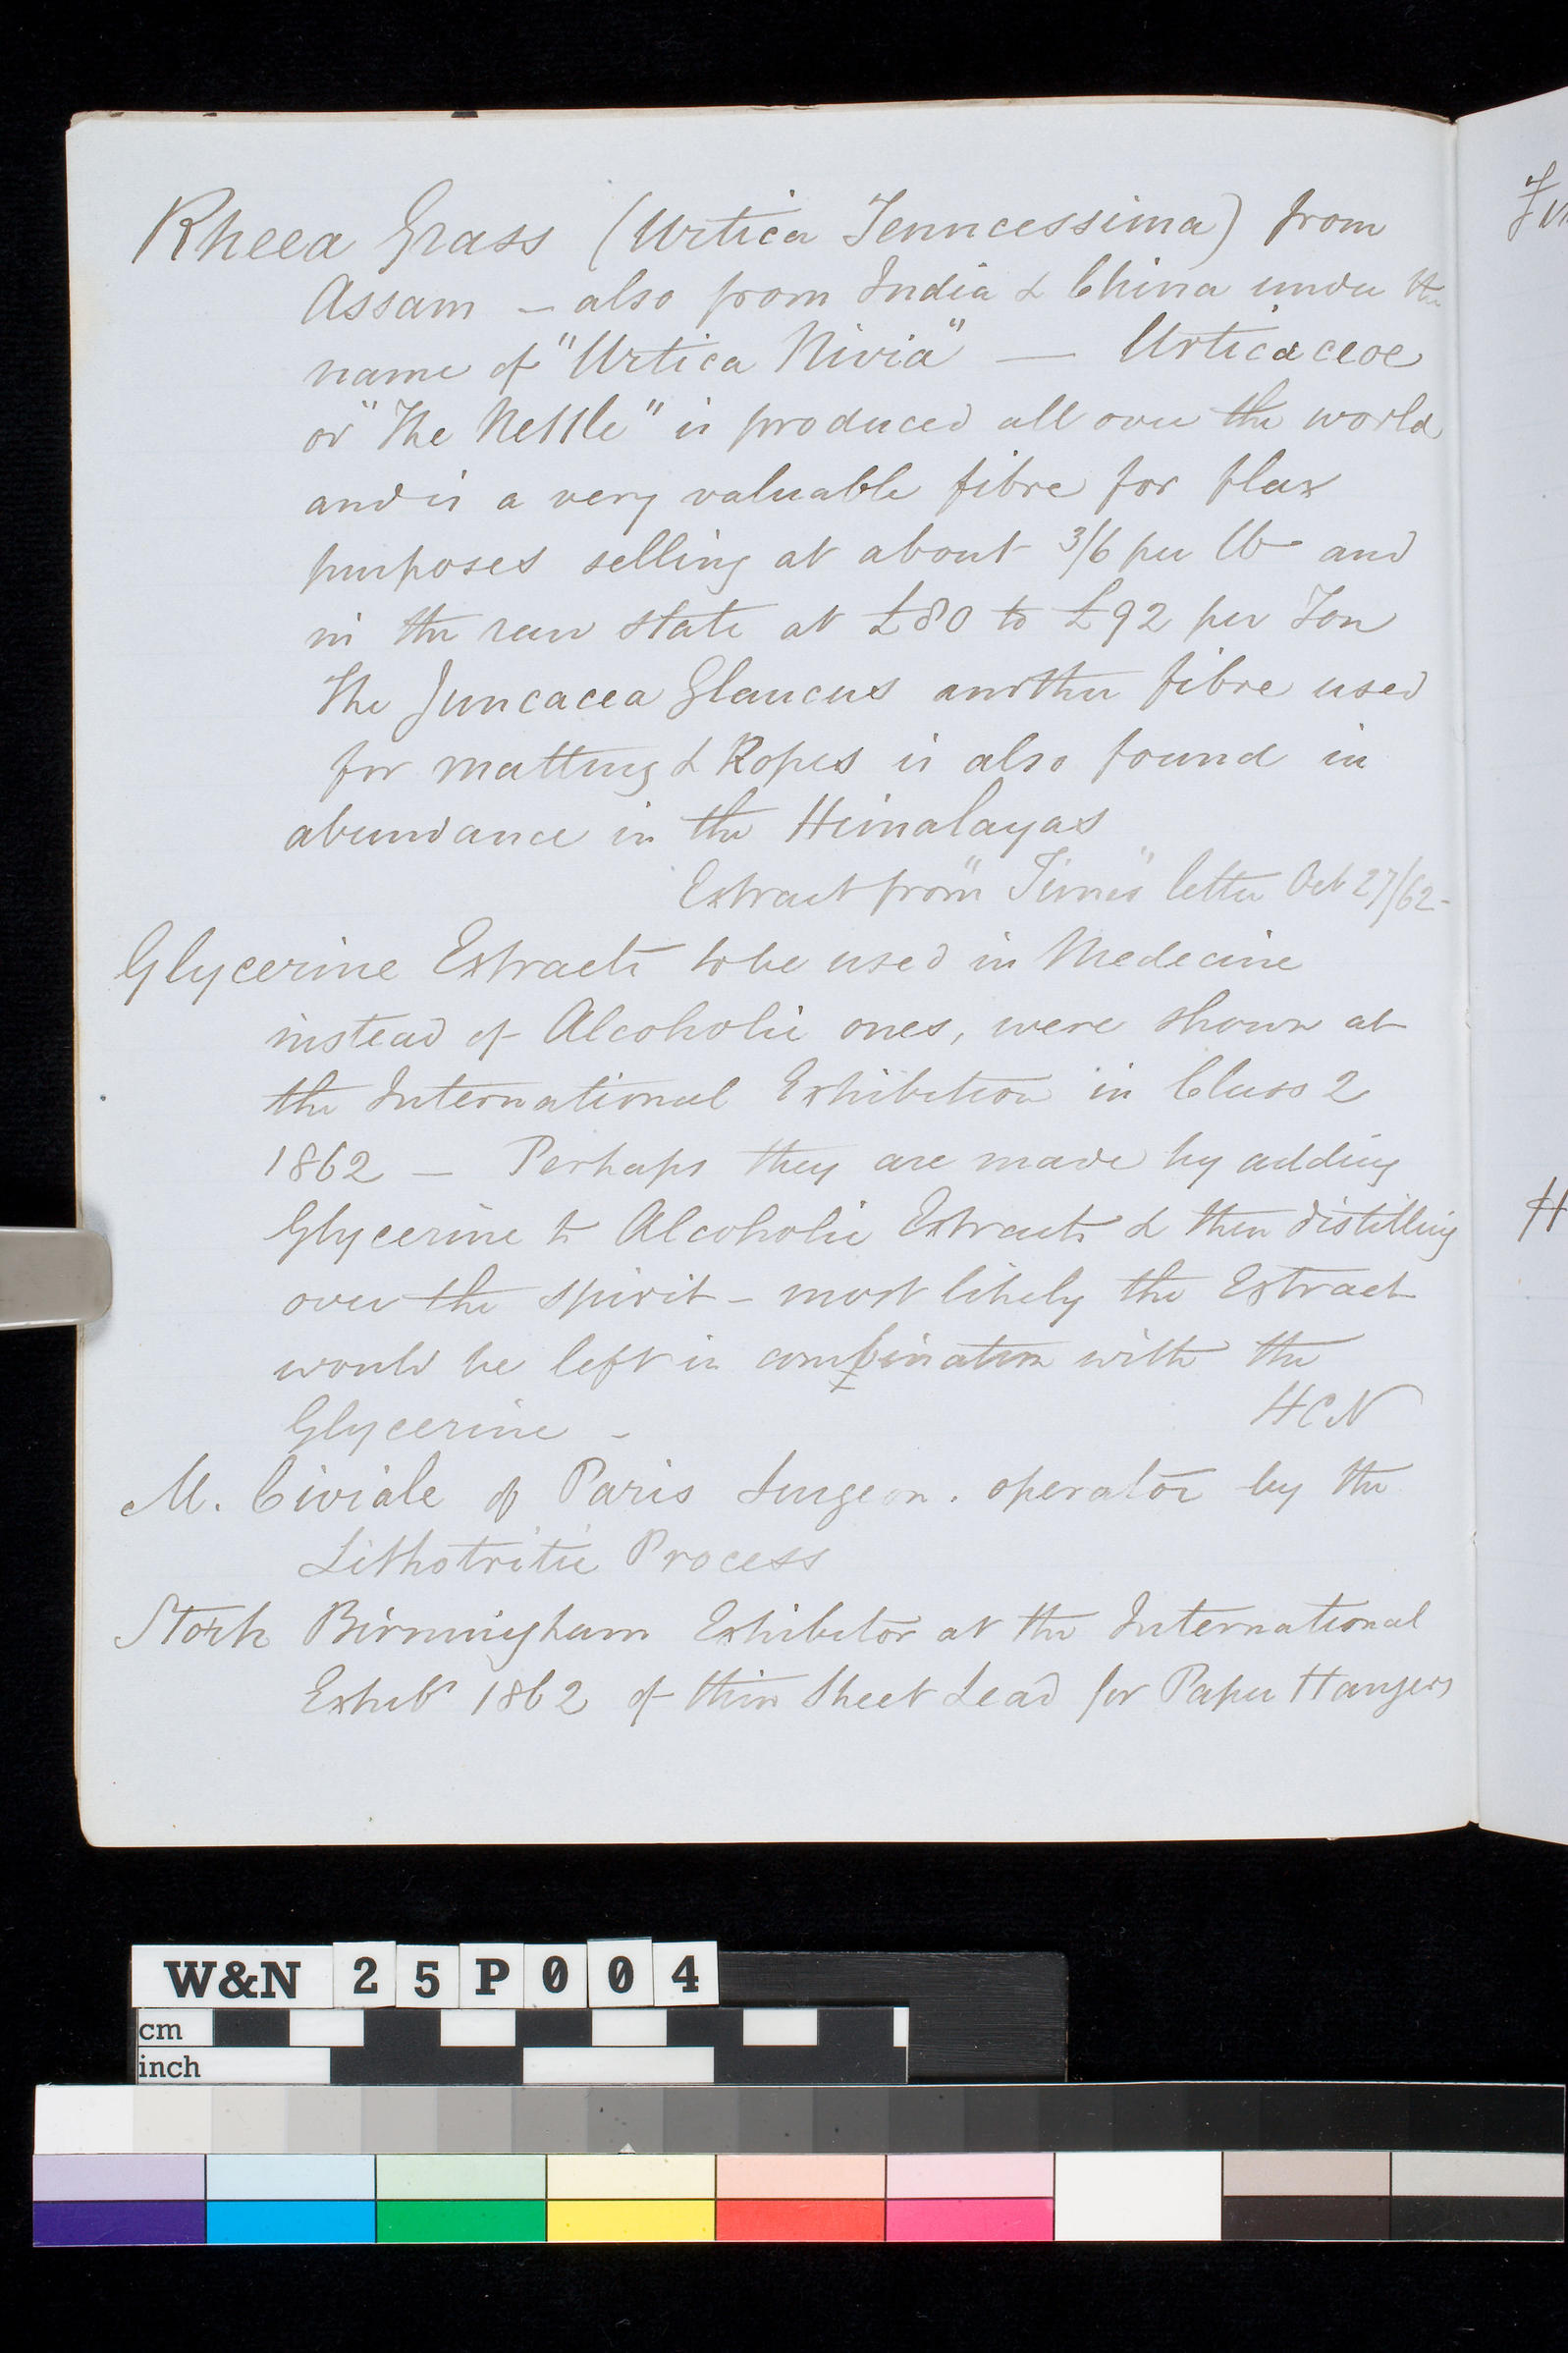 Rheea Grass (Urtica Tenncessima) from
Assam — also from India & China under the
name of "Urtica Nivia" — Urticaceoe
or "The Nettle" is produced all over the world
and is a very valuable fibre for flax
purposes selling at about 3/6 per lb and
in the raw state at £80 to £92 per Ton
The Juncacea Glaucus another fibre used
for matting & Ropes is also found in
abundance in the Himalayas
Extract from "Times" letter Oct 27/62-
Glycerine Extracts to be used in Medecine
instead of Alcoholic ones, were shown at
the International Exhibition in Class 2
1862 — Perhaps they are made by adding
Glycerine to Alcoholic Extracts & then distilling
over the spirit – most likely the Extract
would be left in combination with the
Glycerine – HCN
M. Civiale of Paris Surgeon. operator by the
Lithotritic Process
Birmingham Exhibitor at the International
Exhibn 1862 of thin Sheet Lead for Paper Hangers
W&N 25P004
cm
inch